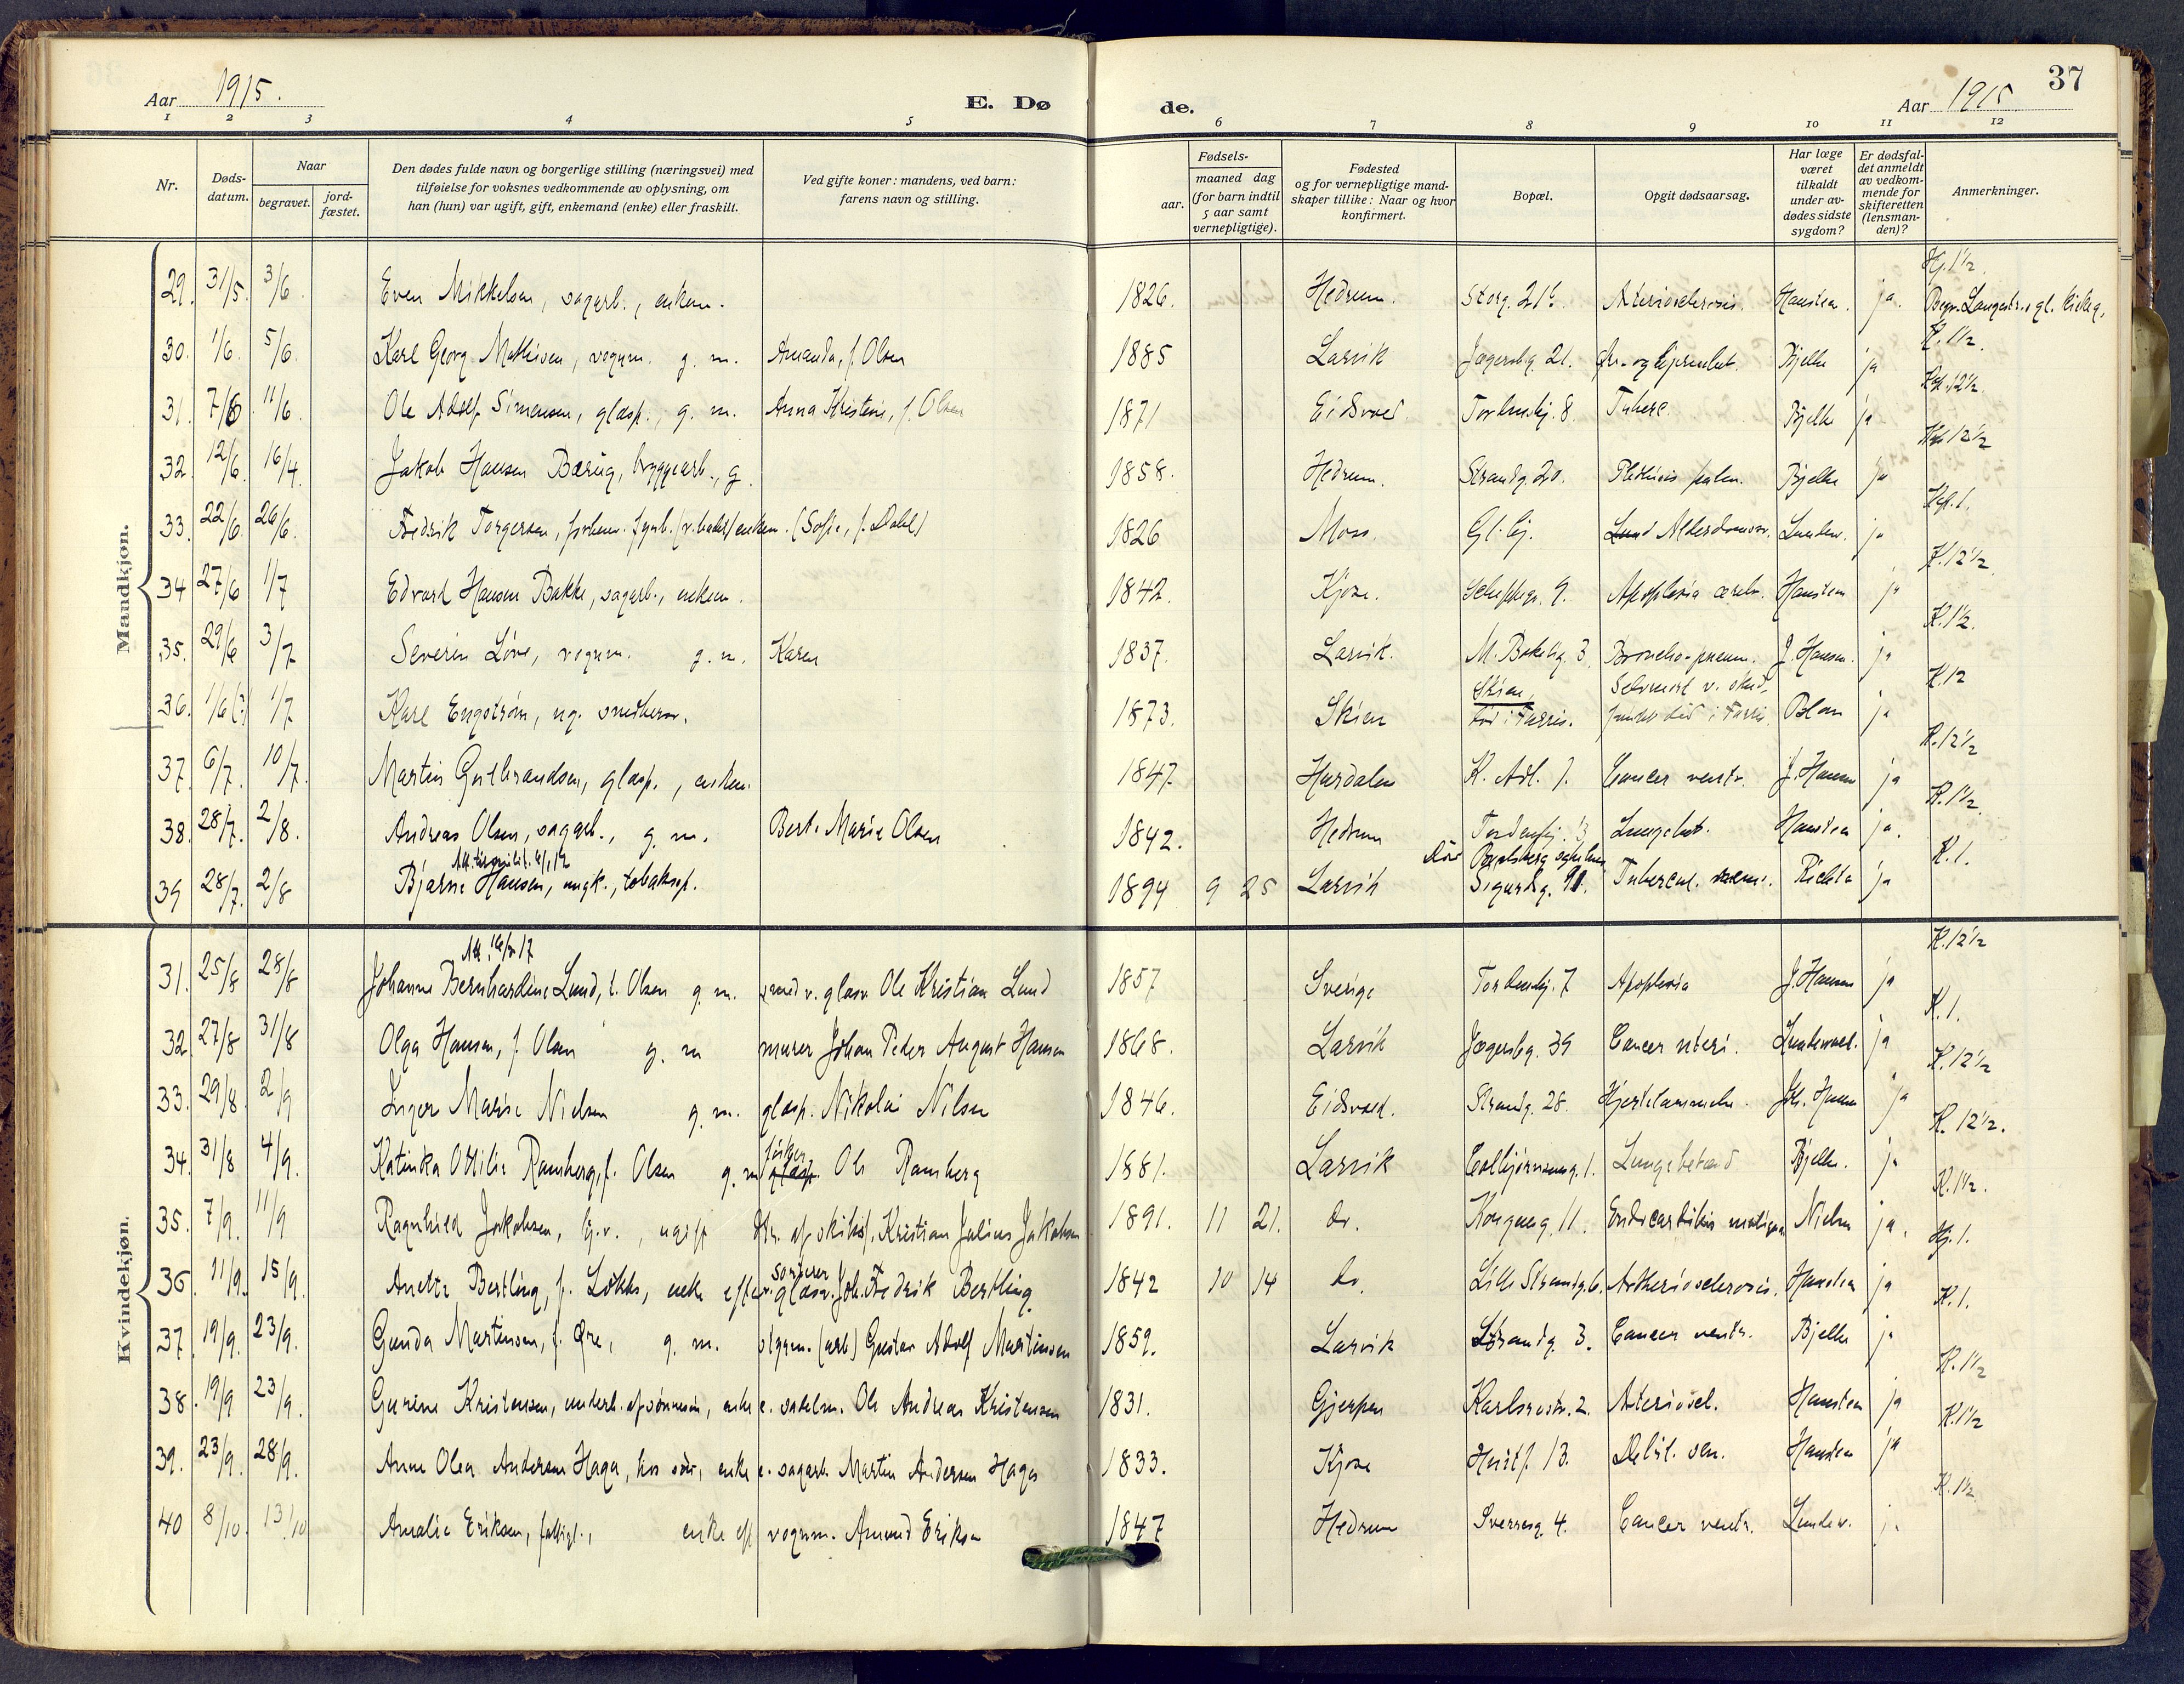 Aar 1915.
E. Dø
de.
Aar 1915
37
1 2 3 4 5 6 7 8 9 10 11 12
Nr.
Døds-
datum.
Naar
begravet.
jord-
fæstet.
Den dødes fulde navn og borgerlige stilling (næringsvei) med
tilføielse for voksnes vedkommende av oplysning, om
han (hun) var ugift, gift, enkemand (enke) eller fraskilt.
Ved gifte koner: mandens, ved barn:
farens navn og stilling.
Fødsels-
aar.
maaned dag
(for barn indtil
5 aar samt
vernepligtige).
Fødested
og for vernepligtige mand-
skaper tillike: Naar og hvor
konfirmert.
Bopæl.
Opgit dødsaarsag.
Har læge
været
tilkaldt
under av-
dødes sidste
sygdom?
Er dødsfal-
det anmeldt
av vedkom-
mende for
skifteretten
(lensman-
den)?
Anmerkninger.
Mandkjøn.
29. 31/5. 3/6. Even Mikkelsen, sagarb., enkem. 1826. Hedrum. Storg. 21 Hansteen. ja. Hj. 1½.
30. 1/6. 5/6. Karl Georg Mathisen, vognm. g. m. Amanda, f. Olsen 1885 Larvik Jægersbg. 21. Bjelke ja K. 1½.
31. 7/6 11/6. Ole Adolf Simensen, glasp., g. m. Anna Kristine, f. Olsen 1871 Eidsvold Tordenskj. 8. Tuberc. Bjelke ja 12½
32. 12/6 16/4. Jakob Hansen Bærug, bryggearb., g. 1858. Hedrum. Strandg. 20. Bjelke ja 12½
33. 22/6. 26/6. Fredrik Torgersen, enkem. (Sofie, f. Dahl) 1826 Moss. Gl. hj. Alderdomssv. Lundev. ja 1.
34 27/6 1/7 Edvard Hansen Bakke, sagarb., enkem. 1842. Kjose. 9. Apoplexia cerebr. Hansteen ja K. 12½
35. 29/6 3/7 Severin Löve, vognm. g. m. Karen 1837. Larvik. M. Bakkeg. 3. Broncho-pneum. J. Hansen. ja K. 1½.
36. 1/6(?) 1/7 Karl Engström, ug. snedkersv. 1873. Skien Skien, død i Farris. Selvmord v. skud, fundet død i Farris. Blom ja K. 12
37. 6/7. 10/7. Martin Gulbrandsen, glasp., enkem. 1847. Hurdalen K. Adl. 7. Cancer ventr. J. Hansen ja K. 12½
38. 28/7. 2/8. Andreas Olsen, sagarb., g. m. Bert. Marie Olsen 1842. Hedrum Tordenskj. 13 Lungebet. Hansteen ja. K. 1½.
39 28/7. 2/8 Bjarne Hansen, ungk., tobaksp. 1894 9 25 Larvik Sigurdsg. Tubercul. ja K. 1.
Kvindekjøn.
31. 25/8 28/8 Johanne Bernhardine Lund, f. Olsen g. m. smed v. glasv. Ole Kristian Lund 1857 Sverige Tordenskj. 7 Apoplexia J. Hansen ja K. 12½
32. 27/8 31/8 Olga Hansen, f. Olsen g. m murer Johan Peder August Hansen 1868. Larvik Jægersbg. 39 Cancer uteri. ja K. 1.
33. 29/8. 2/9 Inger Marie Nielsen g. m. glasp. Nikolai Nilsen 1846. Eidsvold. Strandg. 28. Hjertelammelse. Joh. Hansen ja K. 12½
34. 31/8 4/9. Katinka Ottilie Ramberg, f. Olsen g. m glasp. Ole Ramberg 1881. Larvik Colbjørnseng. 1. Lungebetænd Bjelke. ja K. 12½.
35. 7/9. 11/9 Ragnhild Jakobsen, hj.v., ugift Dtr. af skibstj. Kristian Julius Jakobsen 1891. 11 21. do. Kongeg. 11. Endocarditis maligna Nielsen ja. K. 1½.
36. 11/9. 15/9. Anette Bertling, f. Løkke, enke efter sorterer v. glasv. Joh. Fredrik Bertling 1842 10 14 do. Lille Strandg. 6. Artheriosclerosis. Hansteen ja Hj. 1.
37. 19/9. 23/9. Gunda Martinsen, f. Øre, g. m. (arb) Gustav Adolf Martinsen 1859. Larvik Strandg. 3. Cancer ventr. Bjelke ja K. 1.
38. 19/9 23/9. Gurine Kristensen, underh. af sønnen, enke e. sadelm. Ole Andreas Kristensen 1831. Gjerpen Karlsrostr. 2. Arterioscl. Hansteen ja K. 1½
39. 23/9. 28/9. Anne Olea Andersen Haga, hos søn, enke e. sagarb. Martin Andersen Haga 1833. Kjose 13. Debil. sen. Hansteen ja K. 1½
40 8/10 13/10 Amalie Eriksen, fattigl., enke eft vognm. Amund Eriksen 1847 Hedrum Sverresg. 4. Cancer ventr. Lundev. ja K. 1½